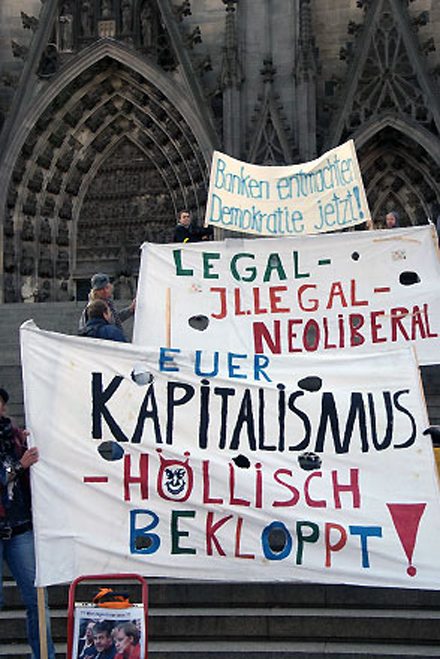 Banken entmachten
Demokratie jetzt!
LEGAL-
ILLEGAL-
NEOLIBERAL
EUER
KAPiTALiSMUS
-HÖLLiSCH
BEKLOPPT!